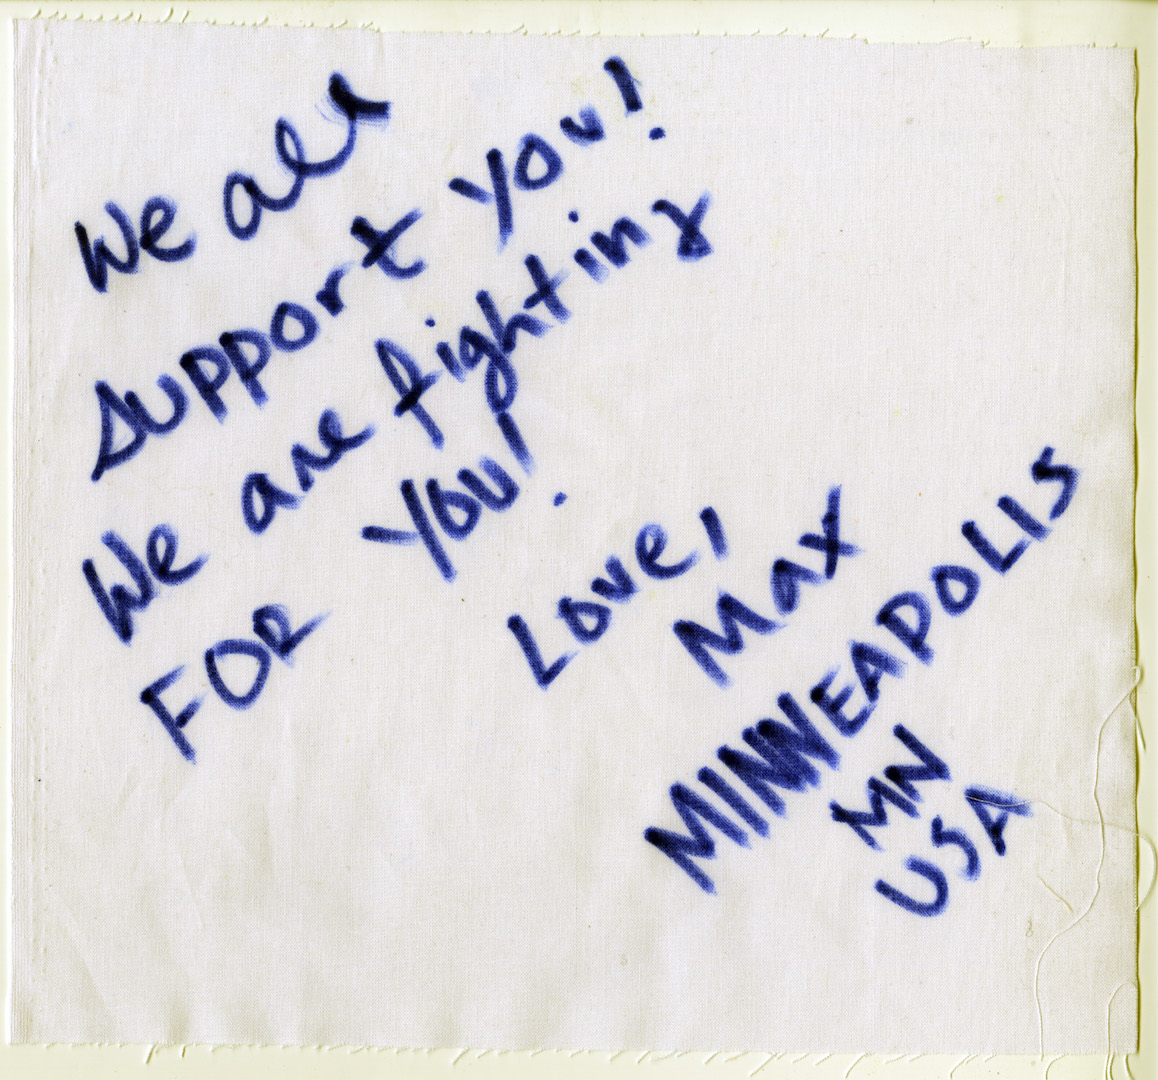 We all
support you!
We are fighting
FOR you!
Love,
Max
MINNEAPOLIS
MN
USA